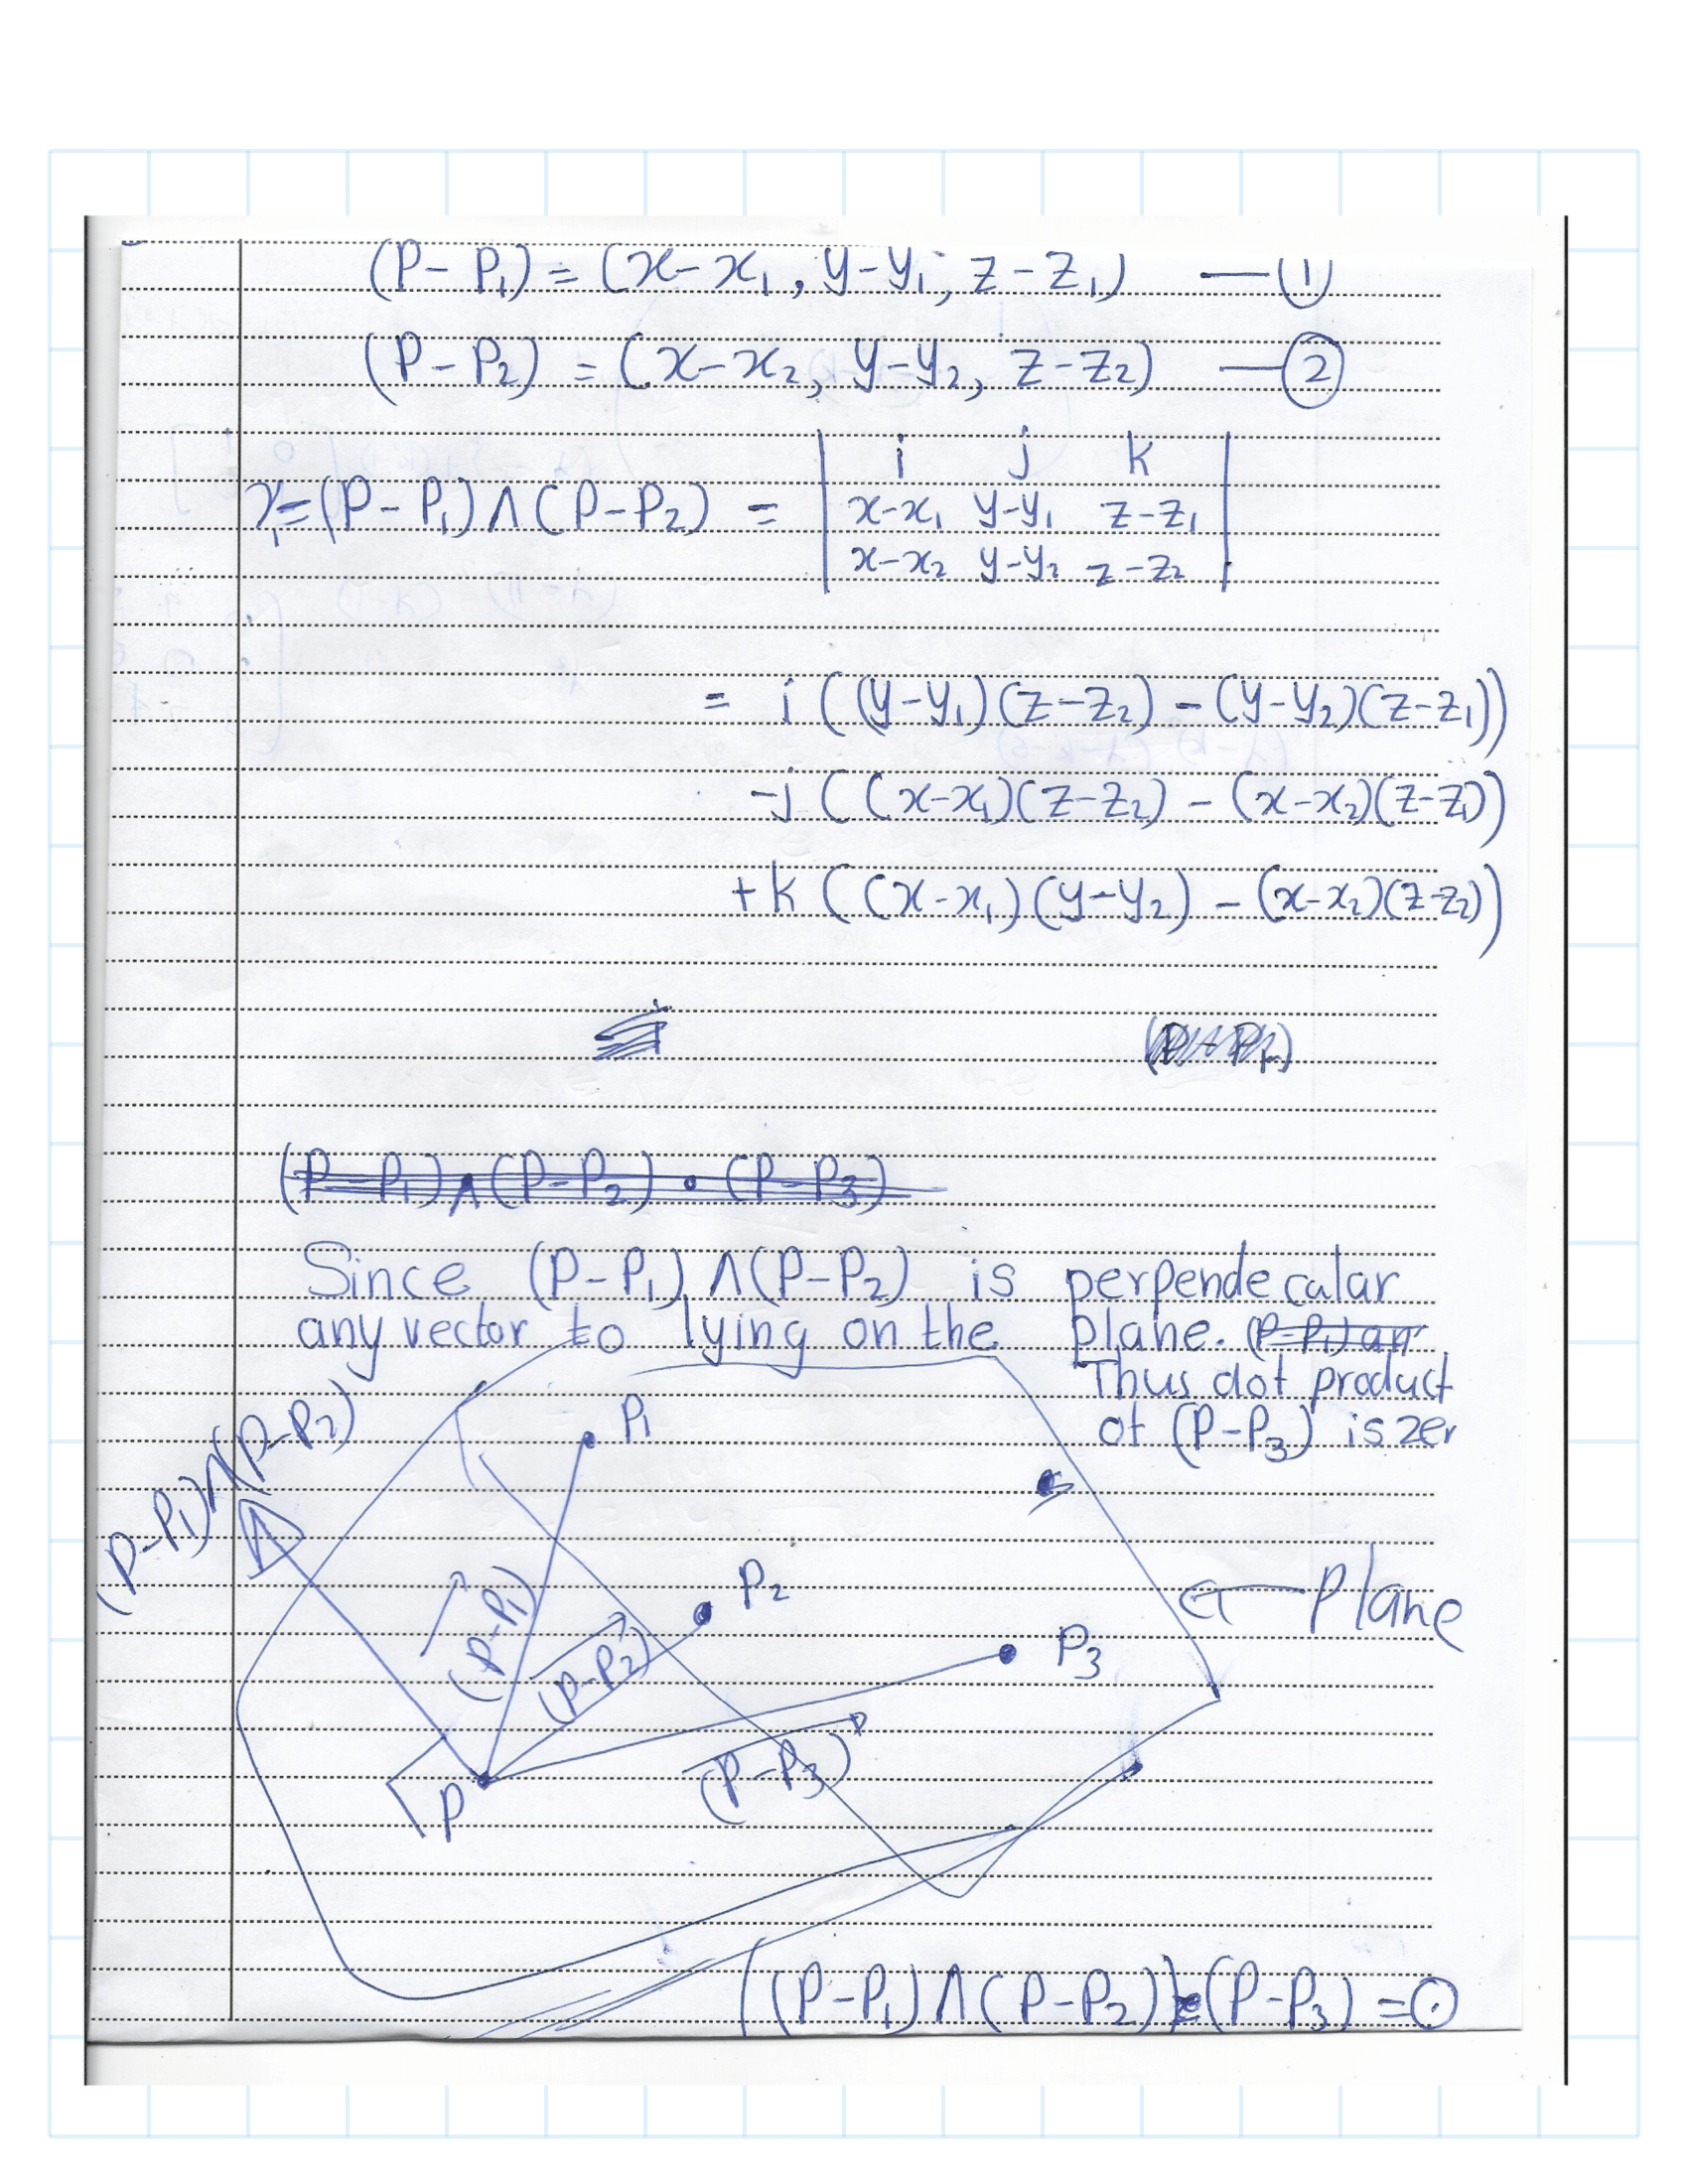 (P - P₁) = (x - x₁, y - y₁, z - z₁) — ①
(P - P₂) = (x - x₂, y - y₂, z - z₂) — ②
i j k
(P - P₁) Λ (P - P₂) = x-x₁ y-y₁ z-z₁
x-x₂ y-y₂ z-z₂
= i ((y-y₁)(z-z₂) - (y-y₂)(z-z₁))
-j ((x-x₁)(z-z₂) - (x-x₂)(z-z₁))
+k ((x-x₁)(y-y₂) - (x-x₂)(z-z₂))
(P-P₁) Λ (P-P₂) • (P-P₃)
Since (P-P₁) Λ (P-P₂) is perpendecalar
any vector to lying on the plane.
Thus dot product
of (P-P₃) is zer
(P-P₁) Λ (P-P₂)
P₁
P₂
(P-P₁)
(P-P₂)
Plane
P₃
(P-P₃)
P
((P-P₁) Λ (P-P₂)) • (P-P₃) = 0